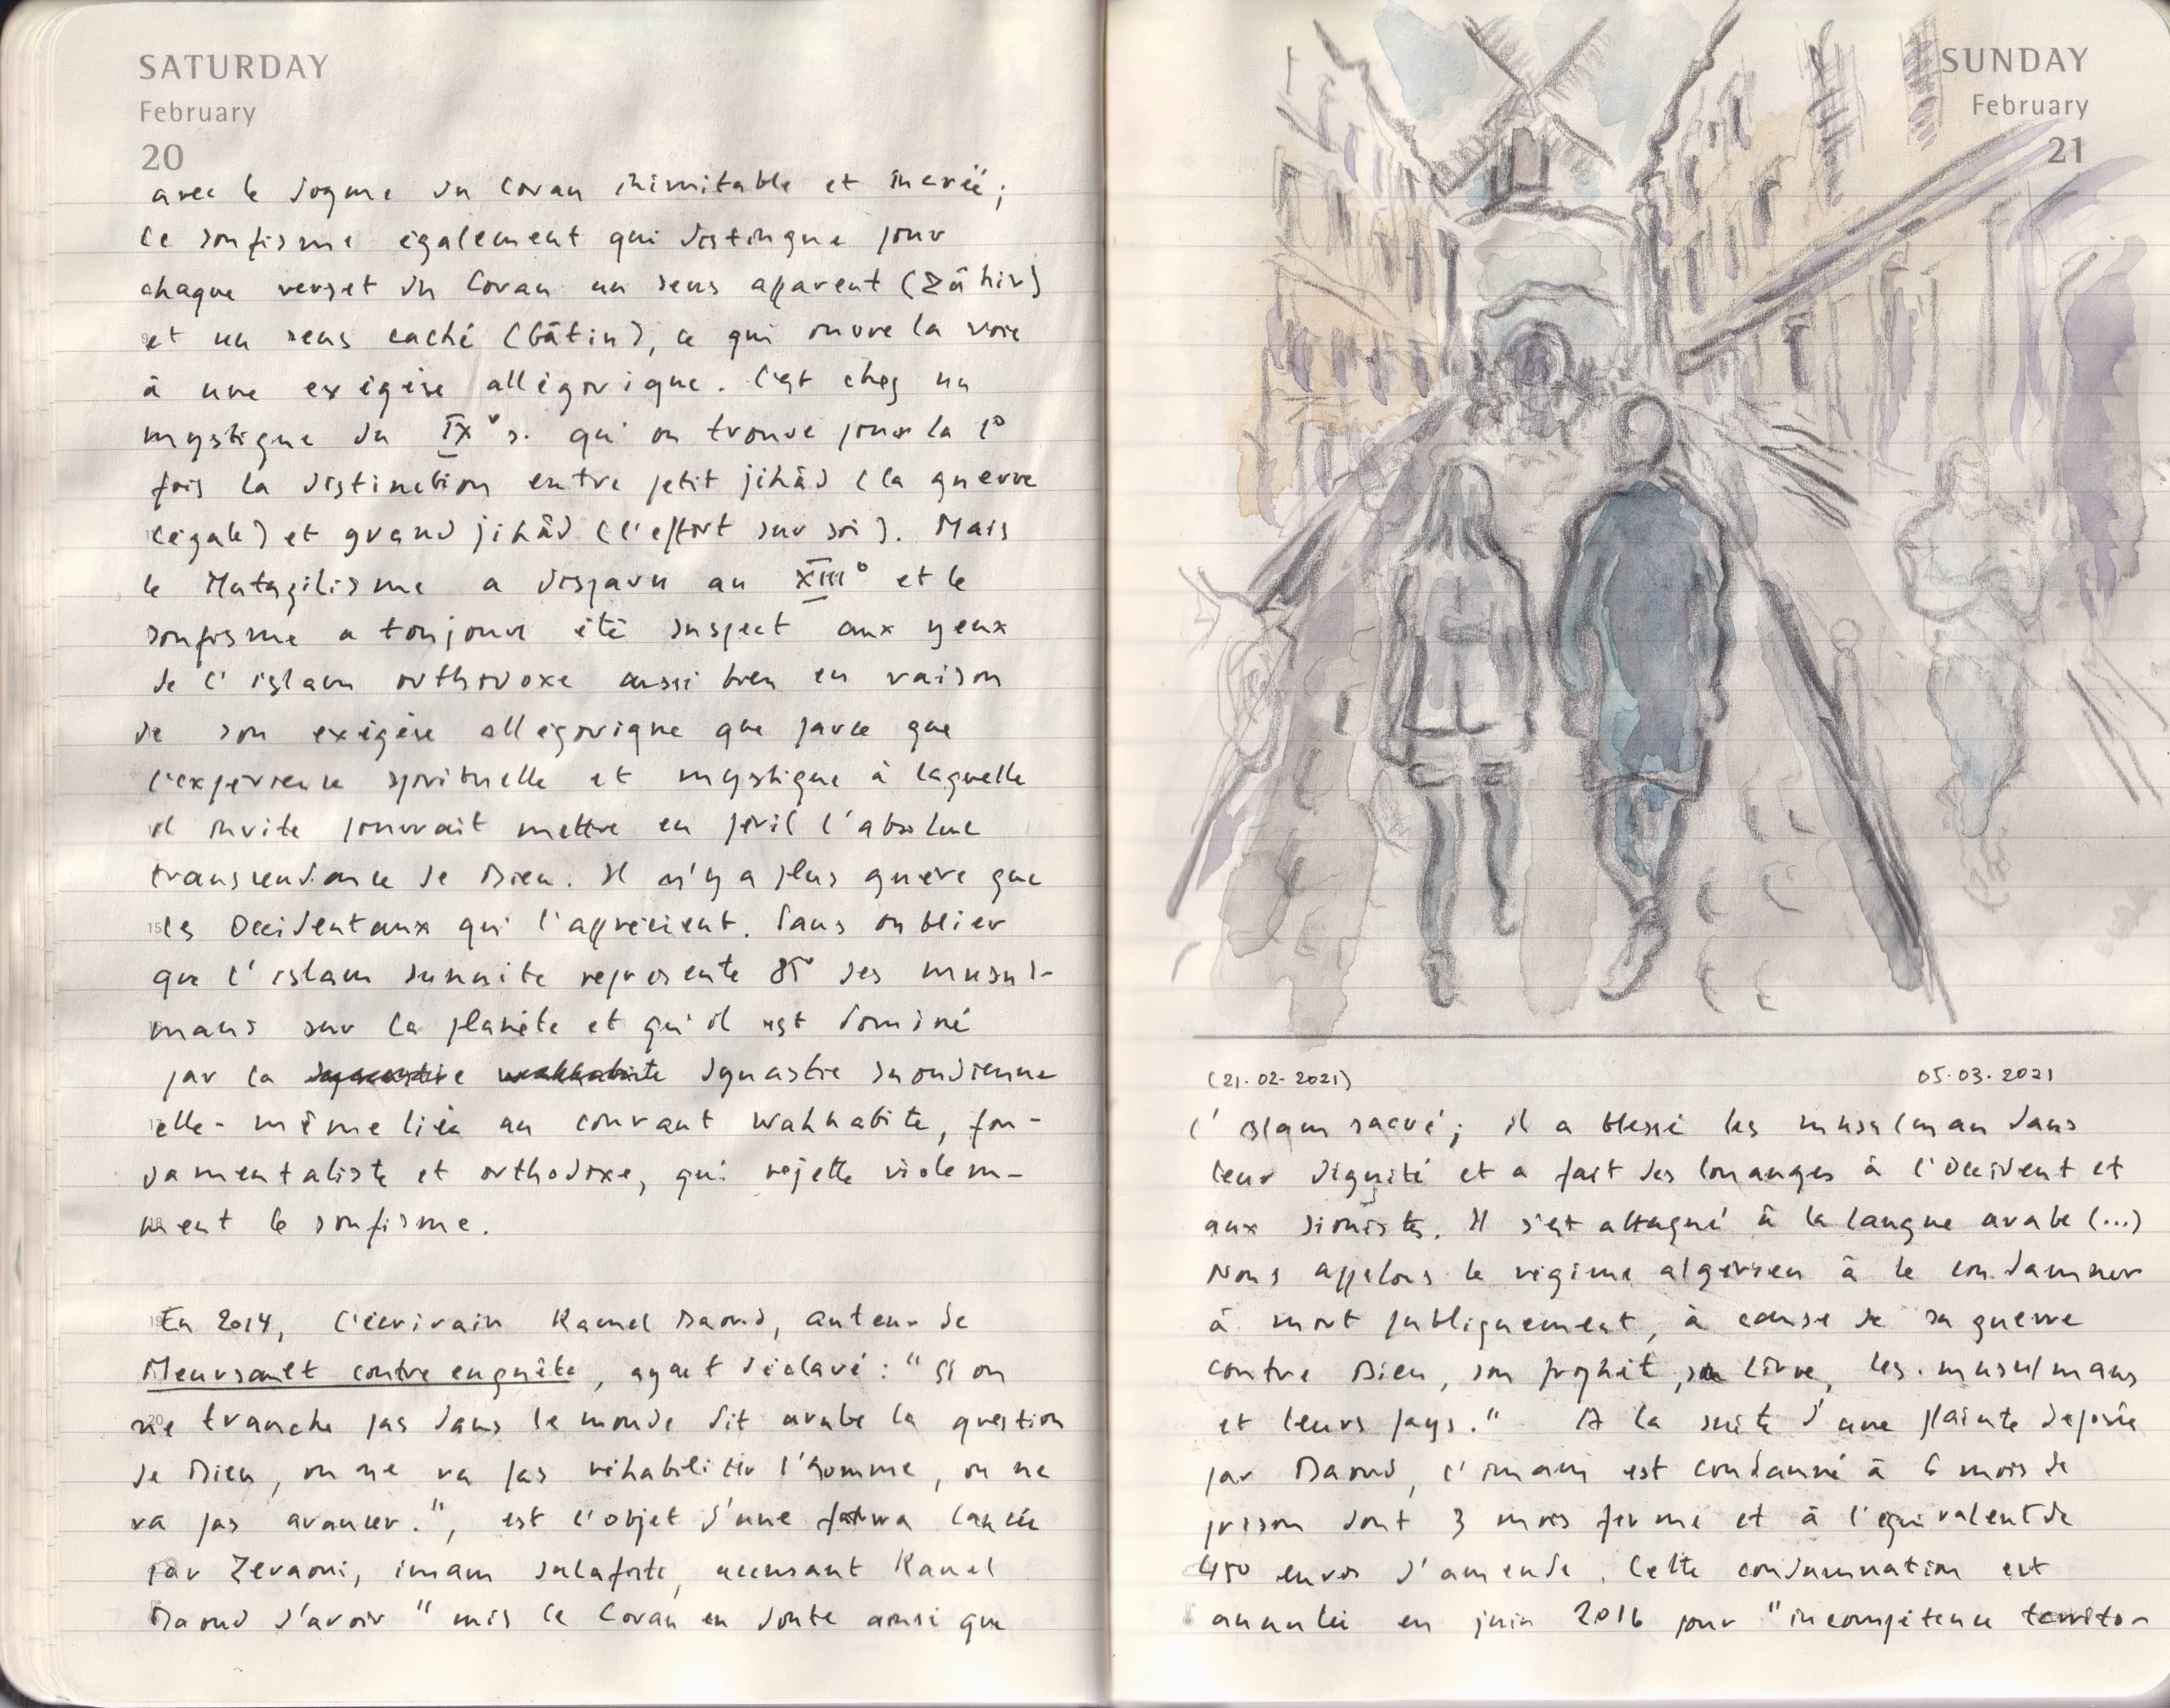 SATURDAY
February
20
avec le dogme du Coran inimitable et incréé ;
le soufisme également qui distingue pour
chaque verset du Coran un sens apparent (zâhir)
et un sens caché (bâtin), ce qui ouvre la voie
à une exégèse allégorique. C'est chez un
mystique du IX° s. qu'on trouve pour la 1°
fois la distinction entre petit jihâd (la guerre
légale) et grand jihâd (l'effort sur soi). Mais
le Mutazilisme a disparu au XIII° et le
soufisme a toujours été suspect aux yeux
de l'islam orthodoxe aussi bien en raison
de son exégèse allégorique que parce que
l'expérience spirituelle et mystique à laquelle
il invite pourrait mettre en péril l'absolue
transcendance de Dieu. Il n'y a plus guère que
les Occidentaux qui l'apprécient. Sans oublier
que l'islam sunnite représente des musul-
mans sur la planète et qu'il est dominé
par la dynastie wahhabite dynastie saoudienne
elle-même liée au courant wahhabite, fon-
damentaliste et orthodoxe, qui rejette violem-
ment le soufisme.
En 2014, l'écrivain Kamel Daoud, auteur de
Meursault contre enquête, ayant déclaré : " Si on
ne tranche pas dans le monde dit arabe la question
de Dieu, on ne va pas réhabiliter l'homme, on ne
va pas avancer.", est l'objet d'une fatwa lancée
par Zeraoui, imam salafiste, accusant Kamel
Daoud d'avoir " mis le Coran en doute ainsi que
SUNDAY
February
21
(21.02.2021) 05.03.2021
l'islam sacré ; il a blessé les musulman dans
leur dignité et a fait des louanges à l'Occident et
aux sionistes. Il s'est attaqué à la langue arabe (...)
Nous appelons le régime algérien à le condamner
à mort publiquement, à cause de sa guerre
contre Dieu, son prophète, son livre, les musulmans
et leurs pays." A la suite d'une plainte déposée
par Daoud, l'imam est condamné à 6 mois de
prison dont 3 mois ferme et à l'équivalent de
450 euros d'amende. Cette condamnation est
annulée en juin 2016 pour "incompétence territo-